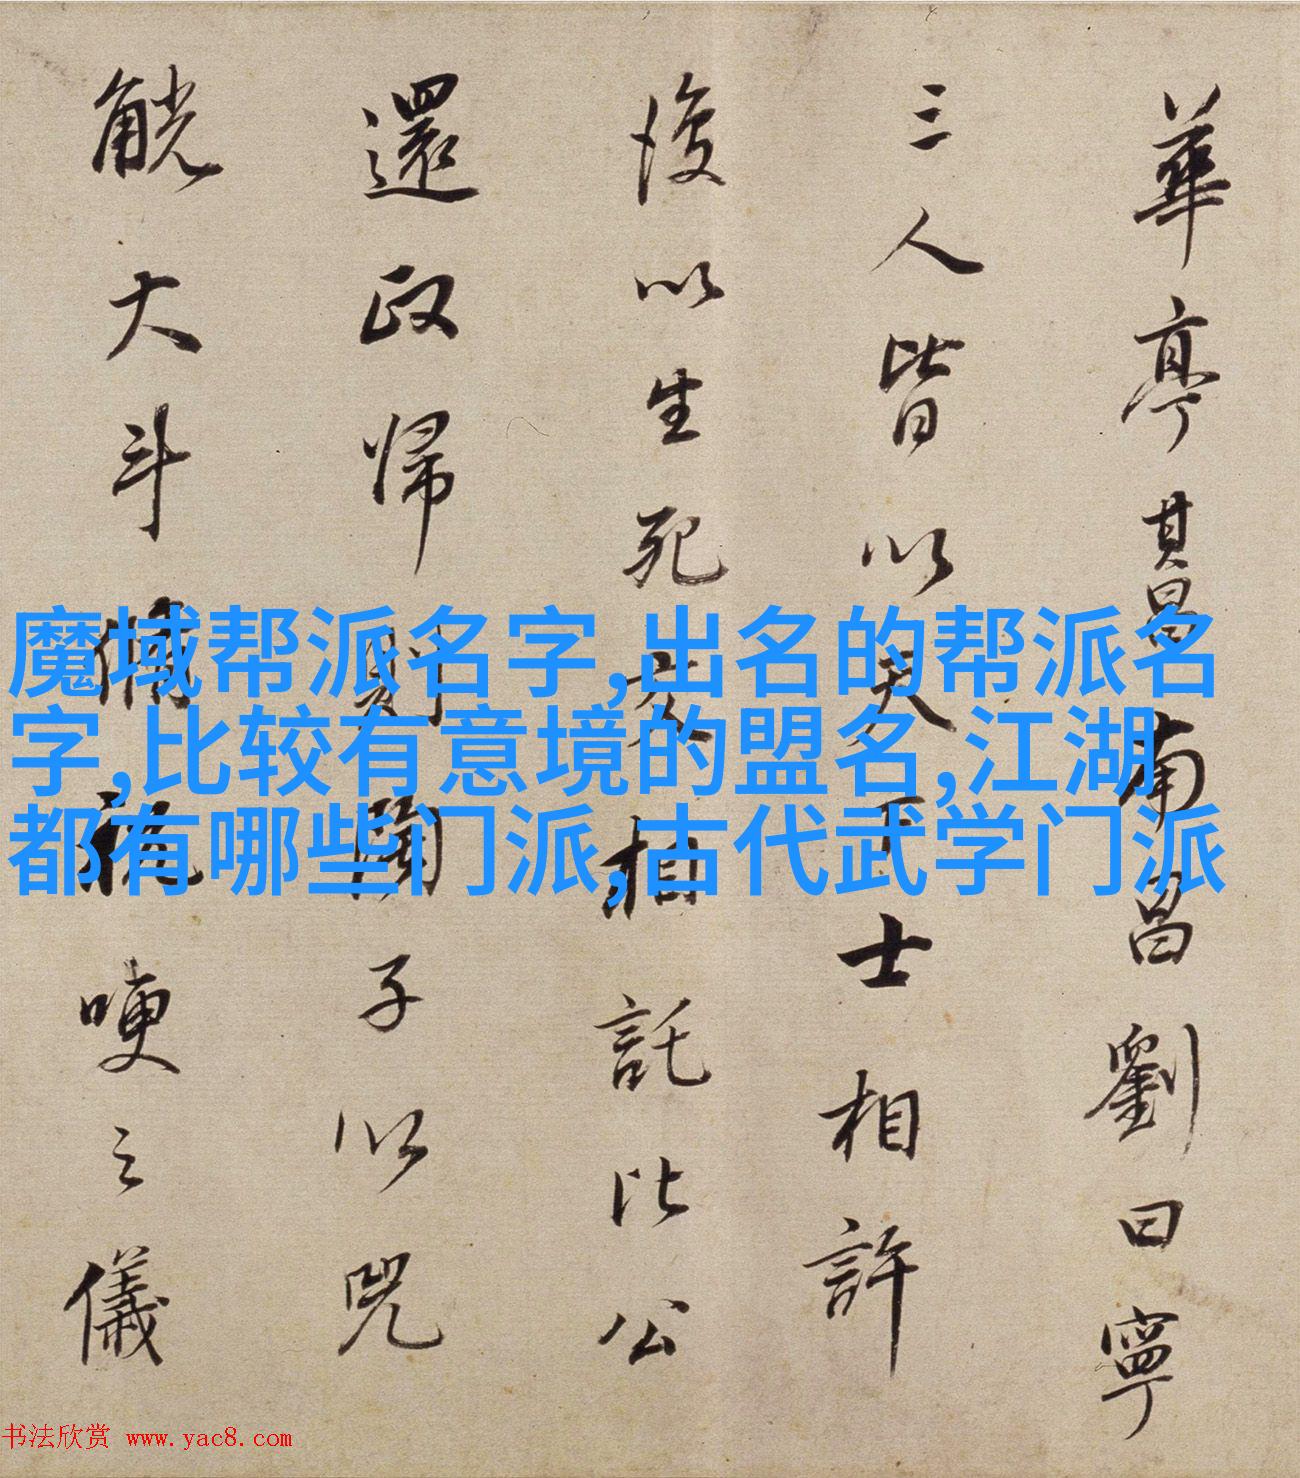 華亭其昌南昌劉曰寧
三人皆以天下士相許
後以生死交相託比公
還政帰則子以兕
觥大斗脩祝哽之儀
魔域帮派名字,出名的帮派名
字,比较有意境的盟名,江湖
都有哪些门派,古代武学门派
书法欣赏 www.yac8.com